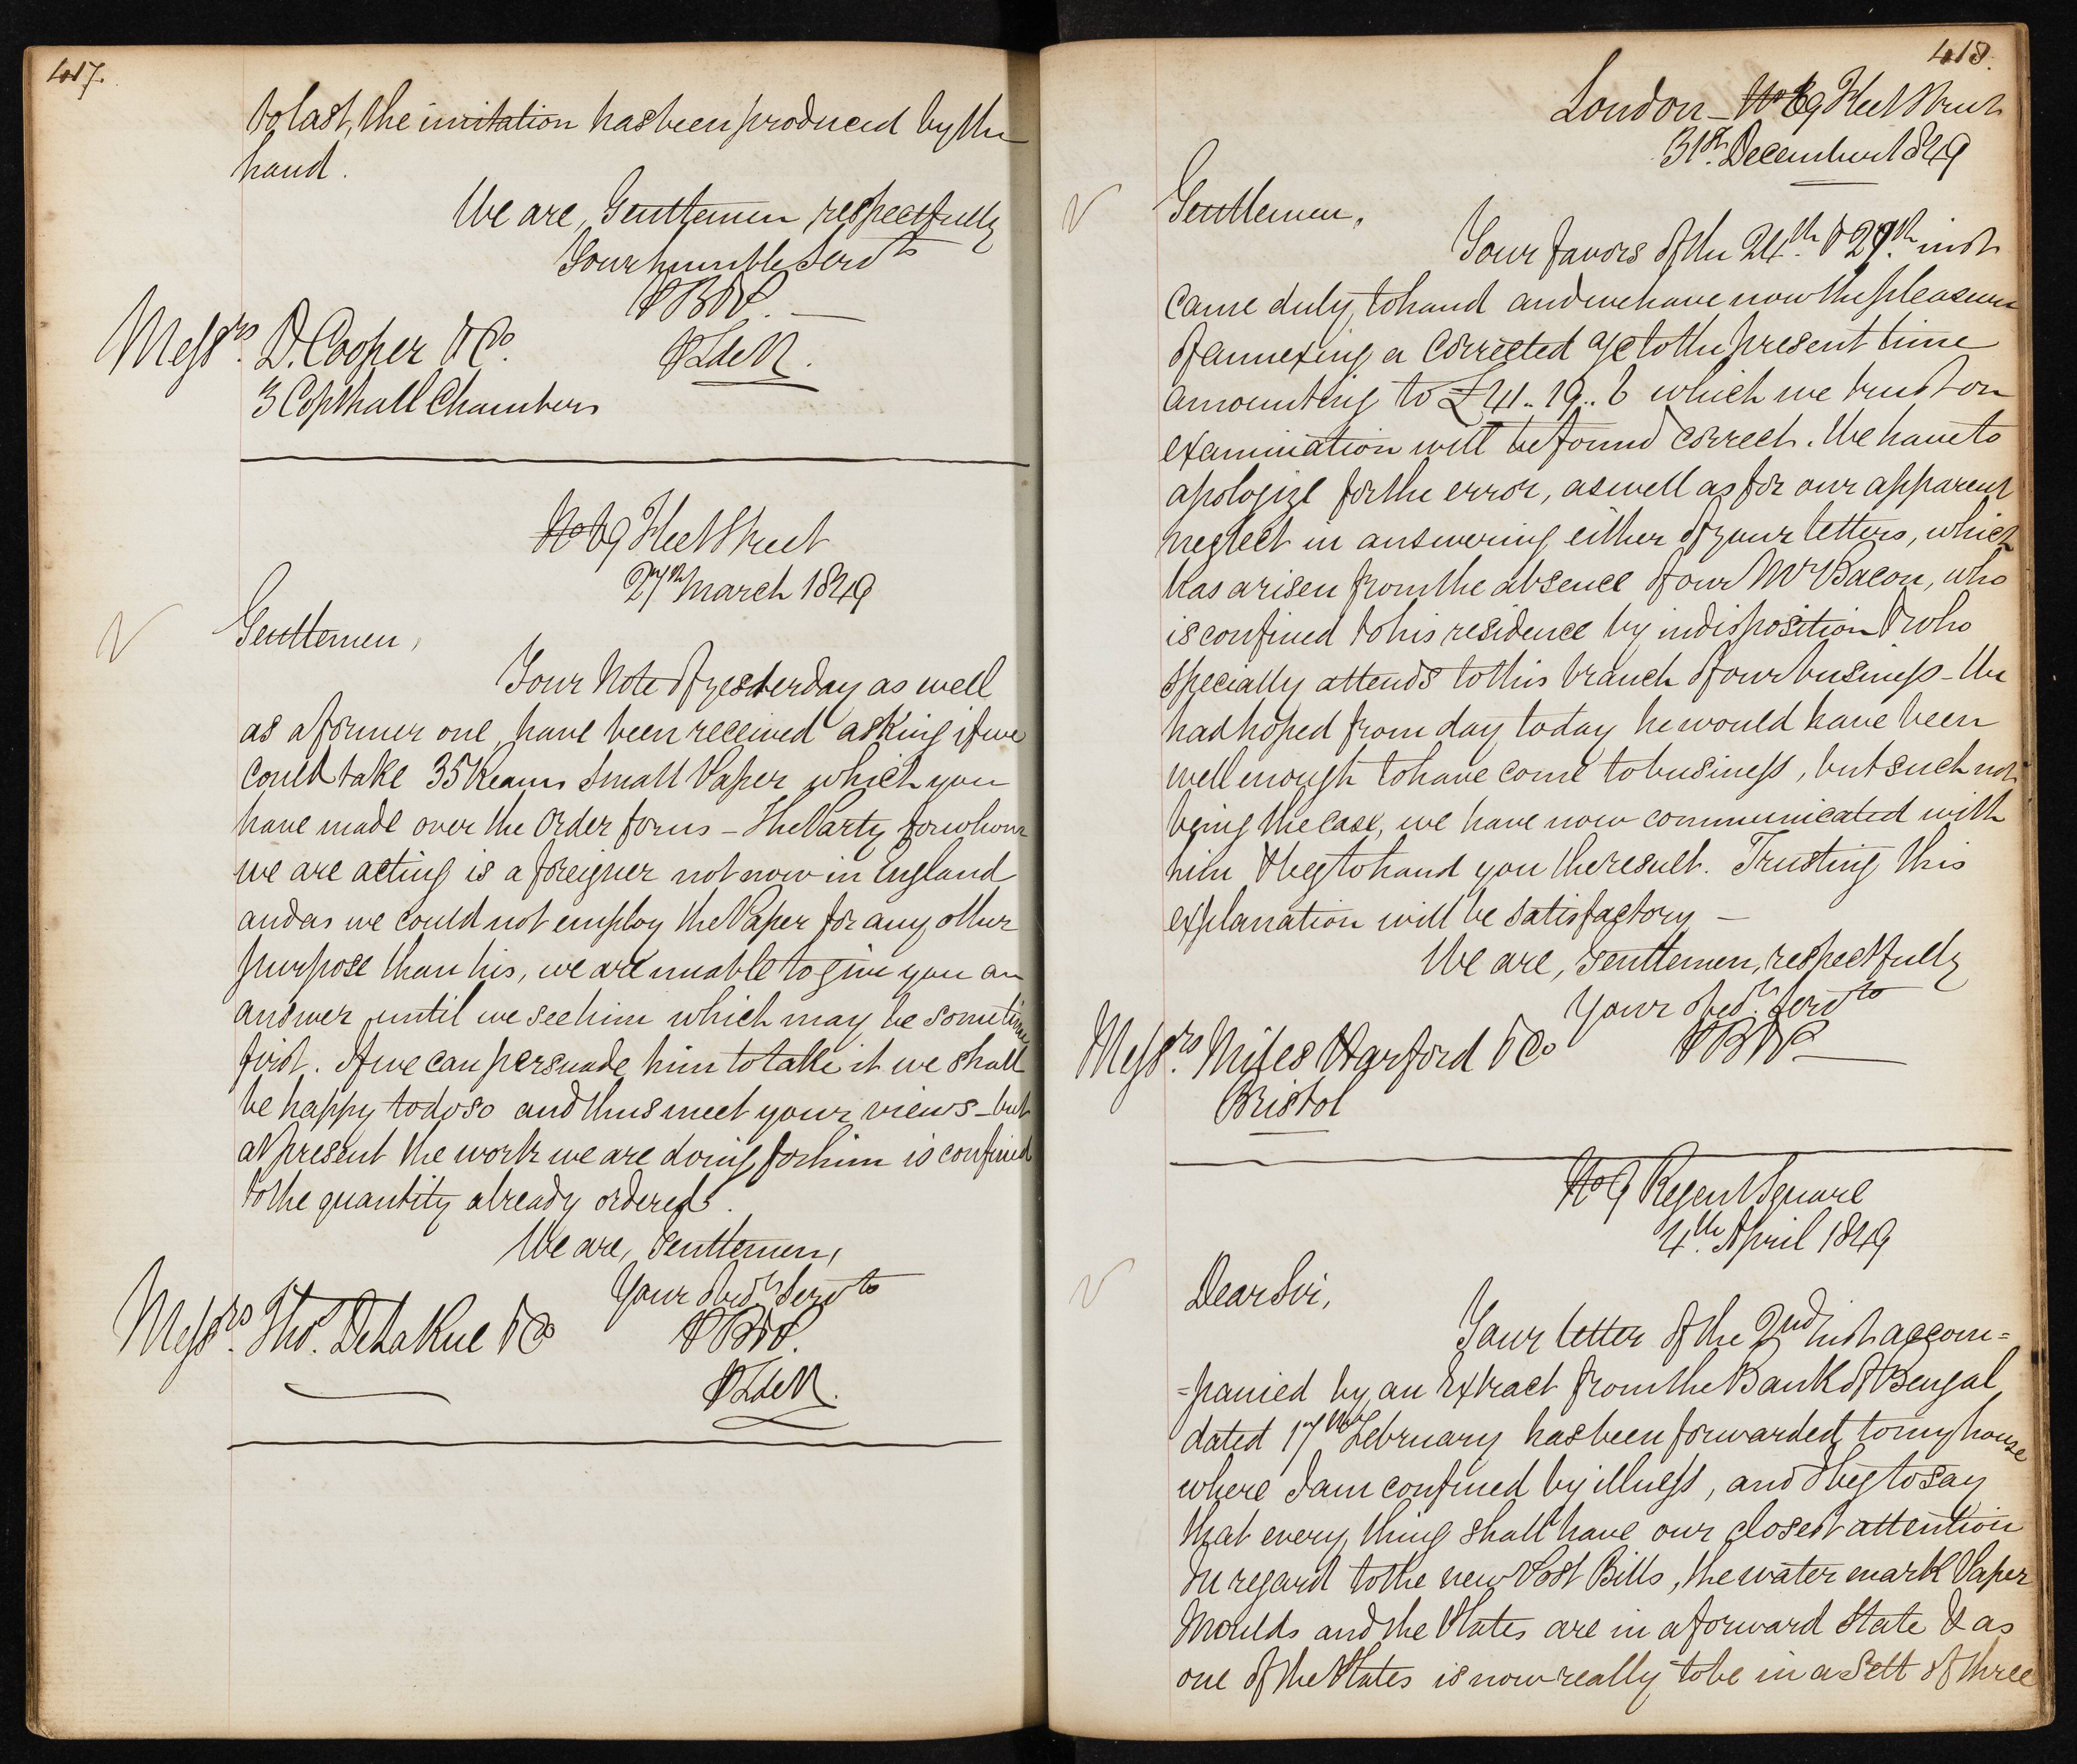 417.
to last, the imitation has been produced by the
hand.
We are, Gentlemen, respectfully
Your humble Servts
PB&P.
Messrs. D. Cooper & Co.
3 Copthall Chambers
No 69 Fleet Street
27th March 1849
Gentlemen,
Your Note of yesterday as well
as a former one, have been received asking if we
could take 35 Reams small Paper which you
have made over the Order for us – The Party for whom
we are acting is a foreigner not now in England
and as we could not employ the Paper for any other
purpose than his, we are unable to give you an
answer until we see him which may be some time
first. If we can persuade him to take it we shall
be happy to do so and thus meet your views – but
at present the work we are doing for him is confined
to the quantity already ordered.
We are, Gentlemen,
Your obedt Servts
Messrs. Thos. De La Rue & Co
PB&P.
418.
London – No 69 Fleet Street
31st. December 1849
Gentlemen,
Your favors of the 24th. & 29th. inst
came duly to hand and we have now the pleasure
of annexing a corrected a/c to the present time
amounting to £41..19..6 which we trust on
examination will be found correct. We have to
apologize for the error, as well as for our apparent
neglect in answering either of your letters, which
has arisen from the absence of our Mr Bacon, who
is confined to his residence by indisposition & who
specially attends to this branch of our business – We
had hoped from day to day he would have been
well enough to have come to business, but such not
being the case, we have now communicated with
him & beg to hand you the result. Trusting this
explanation will be satisfactory –
We are, Gentlemen, respectfully
Your obedt. Servts
Messrs. Miles Harford & Co
PB&P
Bristol
No 9 Regent Square
4th. April 1849
Dear Sir,
Your letter of the 2nd inst accom=
=panied by an Extract from the Bank of Bengal
dated 17th February has been forwarded to my house
where I am confined by illness, and I beg to say
that every thing shall have our closest attention
In regard to the new Post Bills, the water mark Paper
Moulds and the Plates are in a forward State & as
one of the Plates is now really to be in a Sett of three